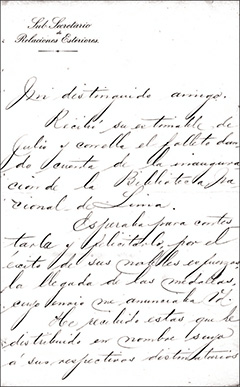 Sub Secretario
de
Relaciones Exteriores.
Mi distinguido amigo.
Recibí su estimable de
Julio y con ella el folleto dan-
do cuenta de la inaugura
ción de la Biblioteca na
cional de Lima.
Esperaba para contes
tarla y felicitarlo por el
éxito de sus nobles esfuerzos,
la llegada de las medallas,
cuyo envio me anunciaba Vd.
He recibido estas que he
distribuido en nombre suyo
á sus respectivos destinatarios